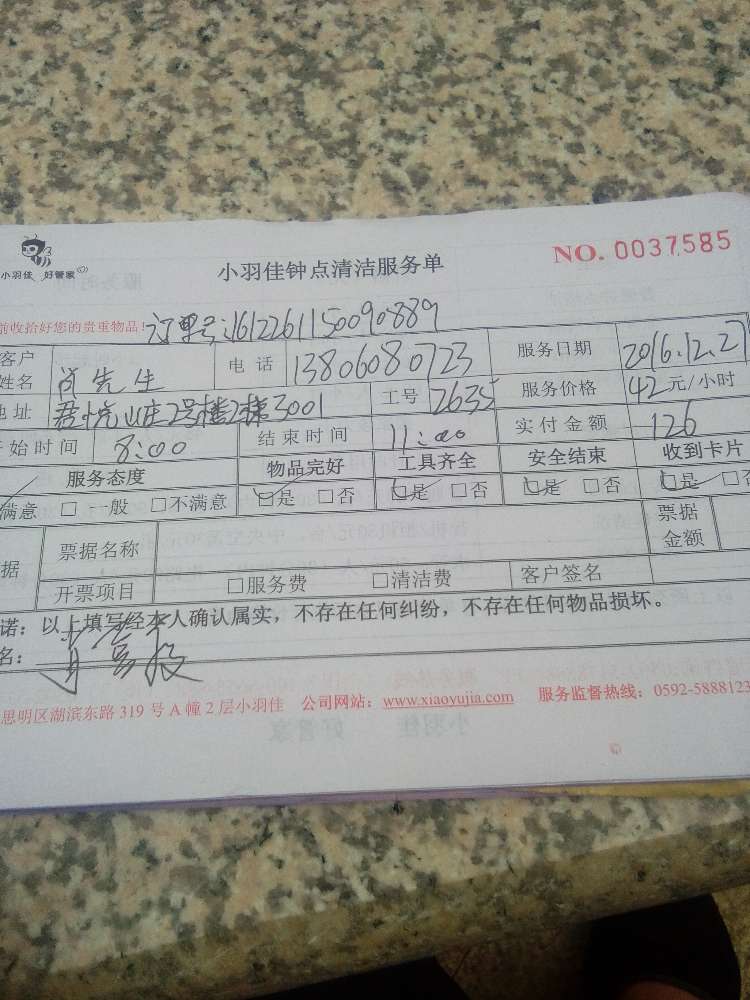 小羽佳 好管家
小羽佳钟点清洁服务单
NO. 0037585
前收拾好您的贵重物品! 订单号:1612261150090889
客户姓名 肖先生 电话 13806080723 服务日期 2016.12.27
地址 君悦山庄2号楼2梯3001 工号 2635 服务价格 42元/小时
开始时间 8:00 结束时间 11:00 实付金额 126
服务态度 物品完好 工具齐全 安全结束 收到卡片
满意 □一般 □不满意 □是 □否 □是 □否 □是 □否 □是 □否
据 票据名称 票据金额
开票项目 □服务费 □清洁费 客户签名
诺:以上填写经本人确认属实,不存在任何纠纷,不存在任何物品损坏。
名:
思明区湖滨东路 319 号 A 幢 2 层小羽佳 公司网站:www.xiaoyujia.com 服务监督热线:0592-5888123